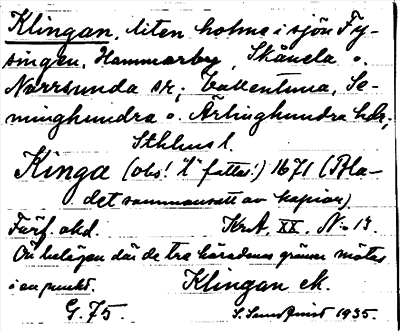 Klingan, liten holme i sjön Fy-
singen, Hammarby, Skånela o.
Norrsunda snr; Vallentuna, Se-
minghundra o. Ärlinghundra hdr;
Sthlms l.
Kinga (obs! "l" fattas!) 1671 (Bla-
det sammansatt av kopior)
Färg. okd. KrA. XX. N:o 13
Ön belägen där de tre häradenas gräns mötas
i en punkt. Klingan ek.
G. 75. S. Lundquist 1935.